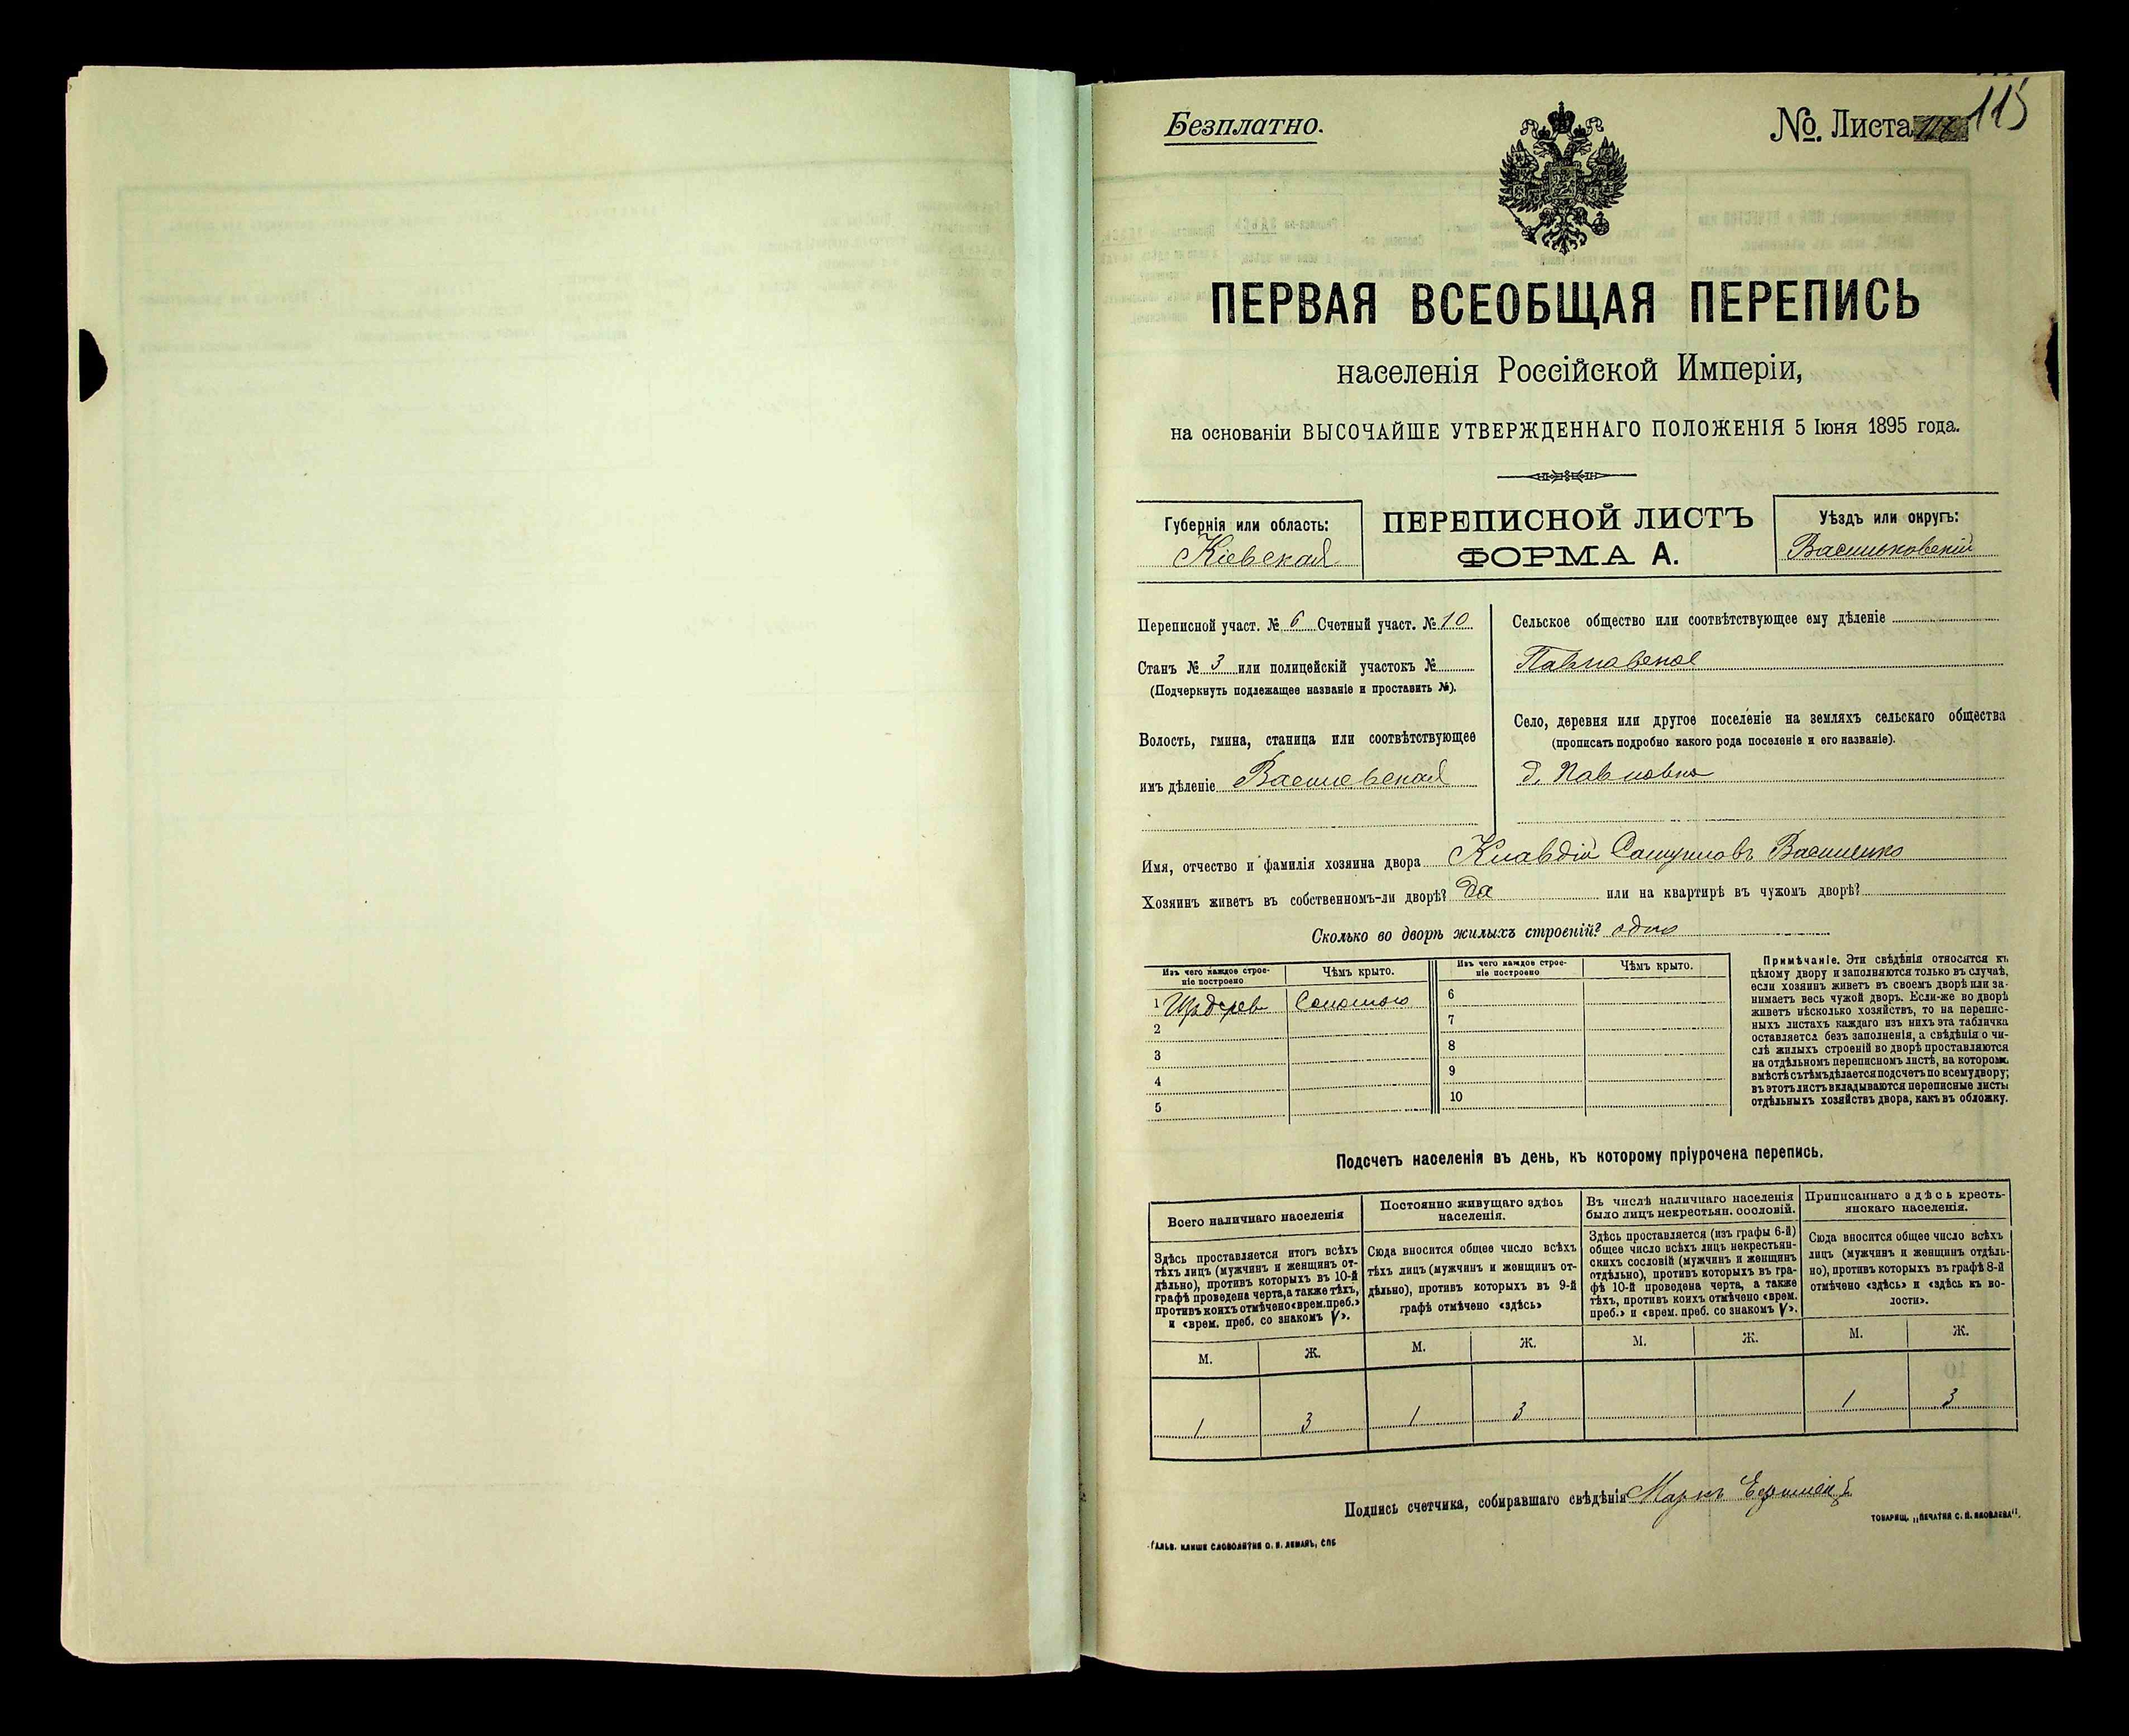 Безплатно.
№. Листа 115
ПЕРВАЯ ВСЕОБЩАЯ ПЕРЕПИСЬ
населенія Россійской Имперіи,
на основаніи ВЫСОЧАЙШЕ УТВЕРЖДЕННАГО ПОЛОЖЕНІЯ 5 Іюня 1895 года.
Губернія или область:
Кіевская
ПЕРЕПИСНОЙ ЛИСТЪ
ФОРМА А.
Уѣздъ или округъ:
Васильковскій
Переписной участ. № 6 Счетный участ. № 10
Станъ № 3 или полицейскій участокъ №
(Подчеркнуть подлежащее названіе и проставить №).
Волость, гмина, станица или соотвѣтствующее
имъ дѣленіе Васильевская
Сельское общество или соотвѣтствующее ему дѣленіе
Павловское
Село, деревня или другое поселеніе на земляхъ сельскаго общества
(прописать подробно какого рода поселеніе и его названіе).
д. Павловка
Имя, отчество и фамилія хозяина двора Клавдій Василенко
Хозяинъ живетъ въ собственномъ-ли дворѣ? Да или на квартирѣ въ чужомъ дворѣ?
Сколько во дворѣ жилыхъ строеній? одно
Изъ чего каждое строе-
ніе построено
Чѣмъ крыто.
1 Изъ дерев Соломою
2
3
4
5
Изъ чего каждое строе-
ніе построено
Чѣмъ крыто.
6
7
8
9
10
Примѣчаніе. Эти свѣдѣнія относятся къ
цѣлому двору и заполняются только въ случаѣ,
если хозяинъ живетъ въ своемъ дворѣ или за-
нимаетъ весь чужой дворъ. Если-же во дворѣ
живетъ нѣсколько хозяйствъ, то на перепис-
ныхъ листахъ каждаго изъ нихъ эта табличка
оставляется безъ заполненія, а свѣдѣнія о чи-
слѣ жилыхъ строеній во дворѣ проставляются
на отдѣльномъ переписномъ листѣ, на которомъ
вмѣстѣ съ тѣмъ дѣлается подсчетъ по всему двору;
въ этотъ листъ вкладываются переписные листы
отдѣльныхъ хозяйствъ двора, какъ въ обложку.
Подсчетъ населенія въ день, къ которому пріурочена перепись.
Всего наличнаго населенія
Здѣсь проставляется итогъ всѣхъ
тѣхъ лицъ (мужчинъ и женщинъ от-
дѣльно), противъ которыхъ въ 10-й
графѣ проведена черта, а также тѣхъ,
противъ коихъ отмѣчено «врем. преб.»
и «врем. преб. со знакомъ V».
М. Ж.
1 3
Постоянно живущаго здѣсь
населенія.
Сюда вносится общее число всѣхъ
тѣхъ лицъ (мужчинъ и женщинъ от-
дѣльно), противъ которыхъ въ 9-й
графѣ отмѣчено «здѣсь»
М. Ж.
1 3
Въ числѣ наличнаго населенія
было лицъ некрестьян. сословій.
Здѣсь проставляется (изъ графы 6-й)
общее число всѣхъ лицъ некрестьян-
скихъ сословій (мужчинъ и женщинъ
отдѣльно), противъ которыхъ въ гра-
фѣ 10-й проведена черта, а также
тѣхъ, противъ коихъ отмѣчено «врем.
преб.» и «врем. преб. со знакомъ V».
М. Ж.
Приписаннаго здѣсь кресть-
янскаго населенія.
Сюда вносится общее число всѣхъ
лицъ (мужчинъ и женщинъ отдѣль-
но), противъ которыхъ въ графѣ 8-й
отмѣчено «здѣсь» и «здѣсь къ во-
лости».
М. Ж.
1 3
Подпись счетчика, собиравшаго свѣдѣнія Маркъ
ТОВАРИЩ. „ПЕЧАТНЯ С. П. ЯКОВЛЕВА".
ГАЛЬВ. КЛИШЕ СЛОВОЛИТНИ О. И. ЛЕМАНЪ, СПБ